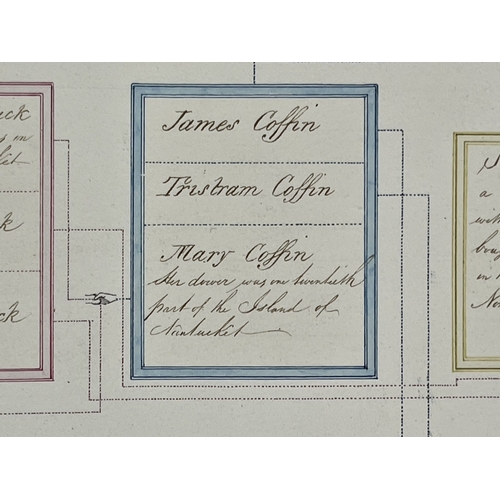 James Coffin
Tristram Coffin
Mary Coffin
Her dower was one twentieth
part of the Island of
Nantucket